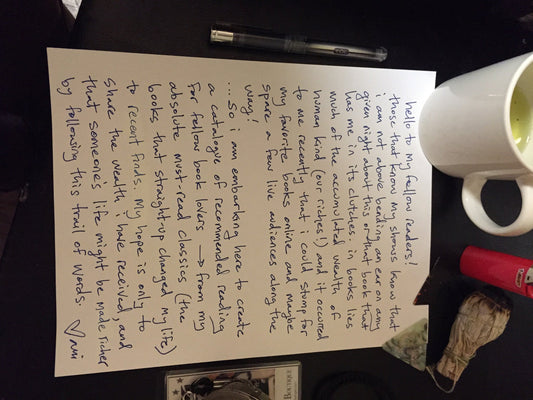 hello to my fellow readers!
those that know my shows know that
i am not above bending an ear on any
given night about this or that book that
has me in its clutches. in books lies
much of the accumulated wealth of
human kind (our riches!) and it occurred
to me recently that i could stump for
my favorite books online and maybe
spare a few live audiences along the
way!
...so i am embarking here to create
a catalogue of recommended reading
for fellow book lovers → from my
absolute must-read classics (the
books that straight-up changed my life)
to recent finds. my hope is only to
share the wealth i have received and
that someone's life might be made richer
by following this trail of words. ♡ ani